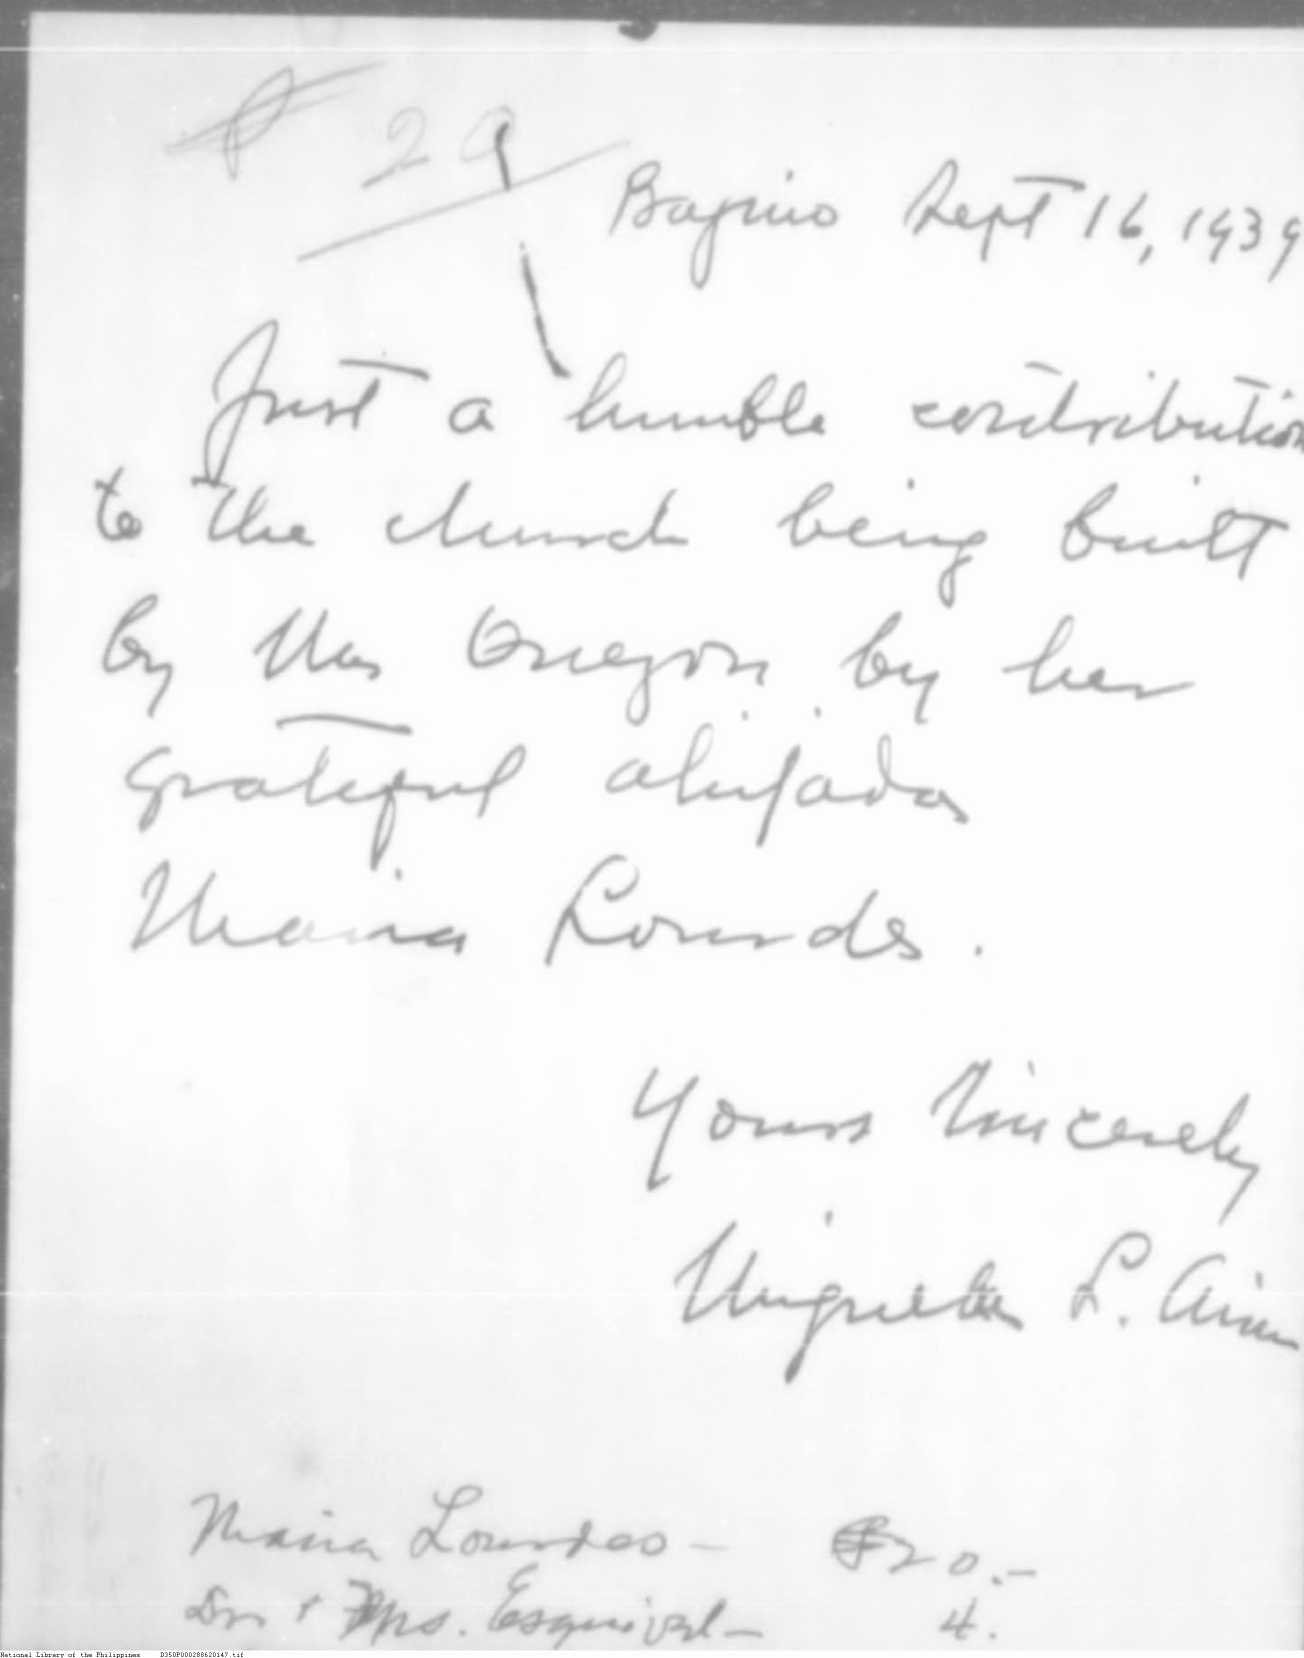 ₱ 29
Baguio Sept 16, 1939
Just a humble contribution
to the church being built
by Mrs Quezon by her
grateful ahijada
Maria Lourdes.
Yours Sincerely
L.
Maria Lourdes - ₱20.-
Dr & Mrs. Esquivel - 4.
National Library of the Philippines D350P000288620147.tif